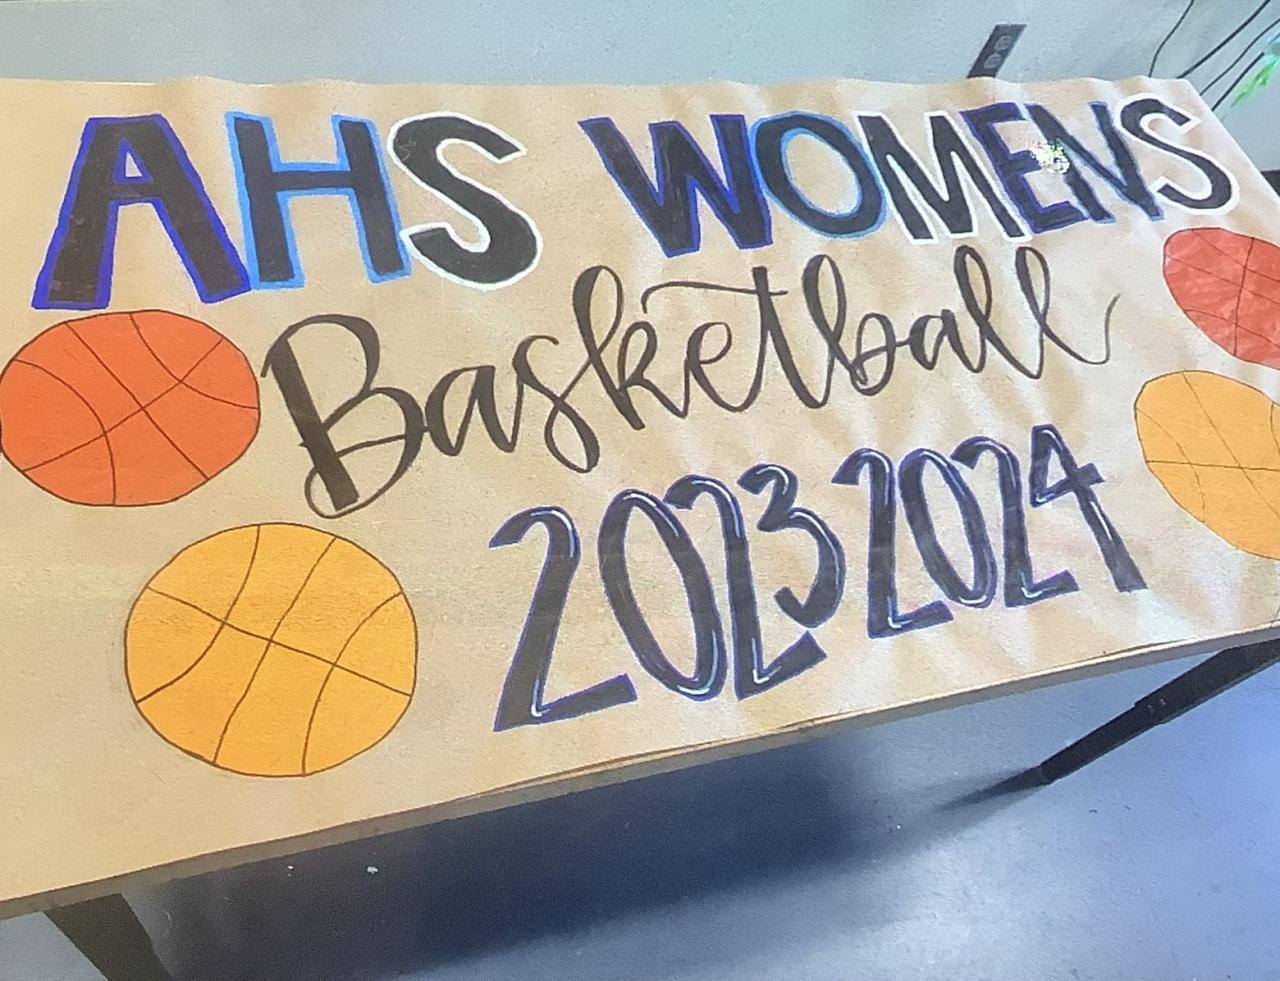 AHS WOMENS
Basketball
2023 2024